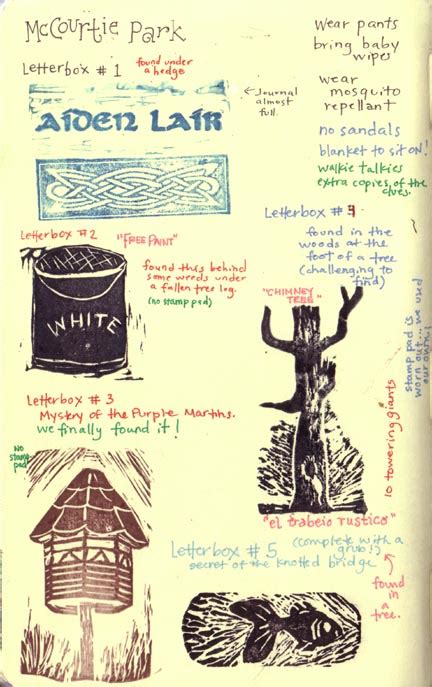 McCourtie Park
Letterbox #1
found under
a hedge
← Journal
almost
full.
AIDEN LAIR
Wear pants
bring baby
wipes
wear
mosquito
repellant
no sandals
blanket to sit ON!
walkie talkies
extra copies of the
clues.
Letterbox #2
"FREE PAINT"
found this behind
some weeds under
a fallen tree log.
(no stamp pad)
WHITE
Letterbox #
found in the
woods at the
foot of a tree
(challenging to
find)
"CHIMNEY
TREE"
stamp pad is
worn out... we used
our own!
10 towering giants
Letterbox #3
Mystery of the Purple Martins.
we finally found it!
No
stamp
pad
"el trabeio rustico"
(complete with a
grub!)
Letterbox #5
secret of the knotted bridge
found
in a
tree.